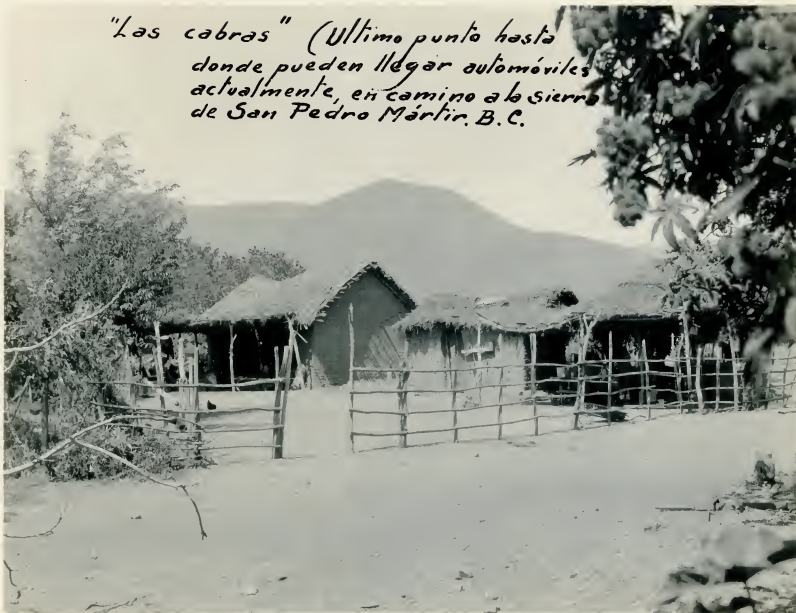 "Las cabras" (Ultimo punto hasta
donde pueden llegar automóviles
actualmente, en camino a la sierra
de San Pedro Mártir. B.C.